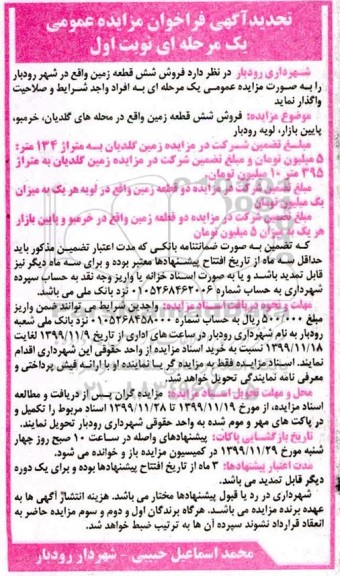 تجدیدآگهی فراخوان مزایده عمومی
یک مرحله ای نوبت اول
شهرداری رودبار در نظر دارد فروش شش قطعه زمین واقع در شهر رودبار
را به صورت مزایده عمومی یک مرحله ای به افراد واجد شرایط و صلاحیت
واگذار نماید
موضوع مزایده: فروش شش قطعه زمین واقع در محله های گلدیان، خرمبو،
پایین بازار، لویه رودبار
مبلغ تضمین شرکت در مزایده زمین گلدیان به متراژ ۱۳۴ متر:
۵ میلیون تومان و مبلغ تضمین شرکت در مزایده زمین گلدیان به متراژ
۳۹۵ متر ۱۰ میلیون تومان
مبلغ تضمین شرکت در مزایده دو قطعه زمین واقع در لویه هر یک به میزان
یک میلیون تومان
مبلغ تضمین شرکت در مزایده دو قطعه زمین واقع در خرمبو و پایین بازار
هر یک به میزان ۵ میلیون تومان
که تضمین به صورت ضمانتنامه بانکی که مدت اعتبار تضمین مذکور باید
حداقل سه ماه از تاریخ افتتاح پیشنهادها معتبر بوده و برای سه ماه دیگر نیز
قابل تمدید باشد و یا به صورت اسناد خزانه یا واریز وجه نقد به حساب سپرده
شهرداری به حساب شماره ۰۱۰۵۲۶۸۴۶۲۰۰۶ نزد بانک ملی می باشد.
مهلت و نحوه دریافت اسناد مزایده: واجدین شرایط می توانند ضمن واریز
مبلغ ۵۰۰/۰۰۰ ریال به حساب شماره ۰۱۰۵۲۶۸۴۵۸۰۰۰ نزد بانک ملی شعبه
رودبار به نام شهرداری رودبار در ساعت های اداری از تاریخ ۱۳۹۹/۱۱/۹ لغایت
۱۳۹۹/۱۱/۱۸ نسبت به خرید اسناد مزایده از واحد حقوقی این شهرداری اقدام
نمایند. اسناد مزایده فقط به مزایده گر یا نماینده او با ارائه فیش پرداختی و
معرفی نامه نمایندگی تحویل خواهد شد.
محل و مهلت تحویل اسناد مزایده: مزایده گران پس از دریافت و مطالعه
اسناد مزایده، از مورخ ۱۳۹۹/۱۱/۱۹ تا ۱۳۹۹/۱۱/۲۸ اسناد مربوط را تکمیل و
در پاکت های مهر و موم شده به واحد حقوقی شهرداری رودبار تحویل نمایند.
تاریخ بازگشایی پاکات: پیشنهادهای واصله در ساعت ۱۰ صبح روز چهار
شنبه مورخ ۱۳۹۹/۱۱/۲۹ در کمیسیون مزایده باز و خوانده می شود.
مدت اعتبار پیشنهادها: ۳ ماه از تاریخ افتتاح پیشنهادها بوده و برای یک دوره
دیگر قابل تمدید می باشد.
شهرداری در رد یا قبول پیشنهادها مختار می باشد. هزینه انتشار آگهی ها به
عهده برنده مزایده می باشد. هرگاه برندگان اول و دوم و سوم مزایده حاضر به
انعقاد قرارداد نشوند سپرده آن ها به ترتیب ضبط خواهد شد.
محمد اسماعیل حبیبی - شهردار رودبار